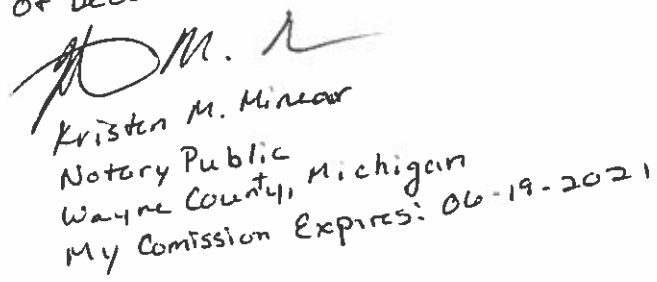 of
Kristen M. Minear
Notary Public
Wayne County, Michigan
My Comission Expires: 06-19-2021